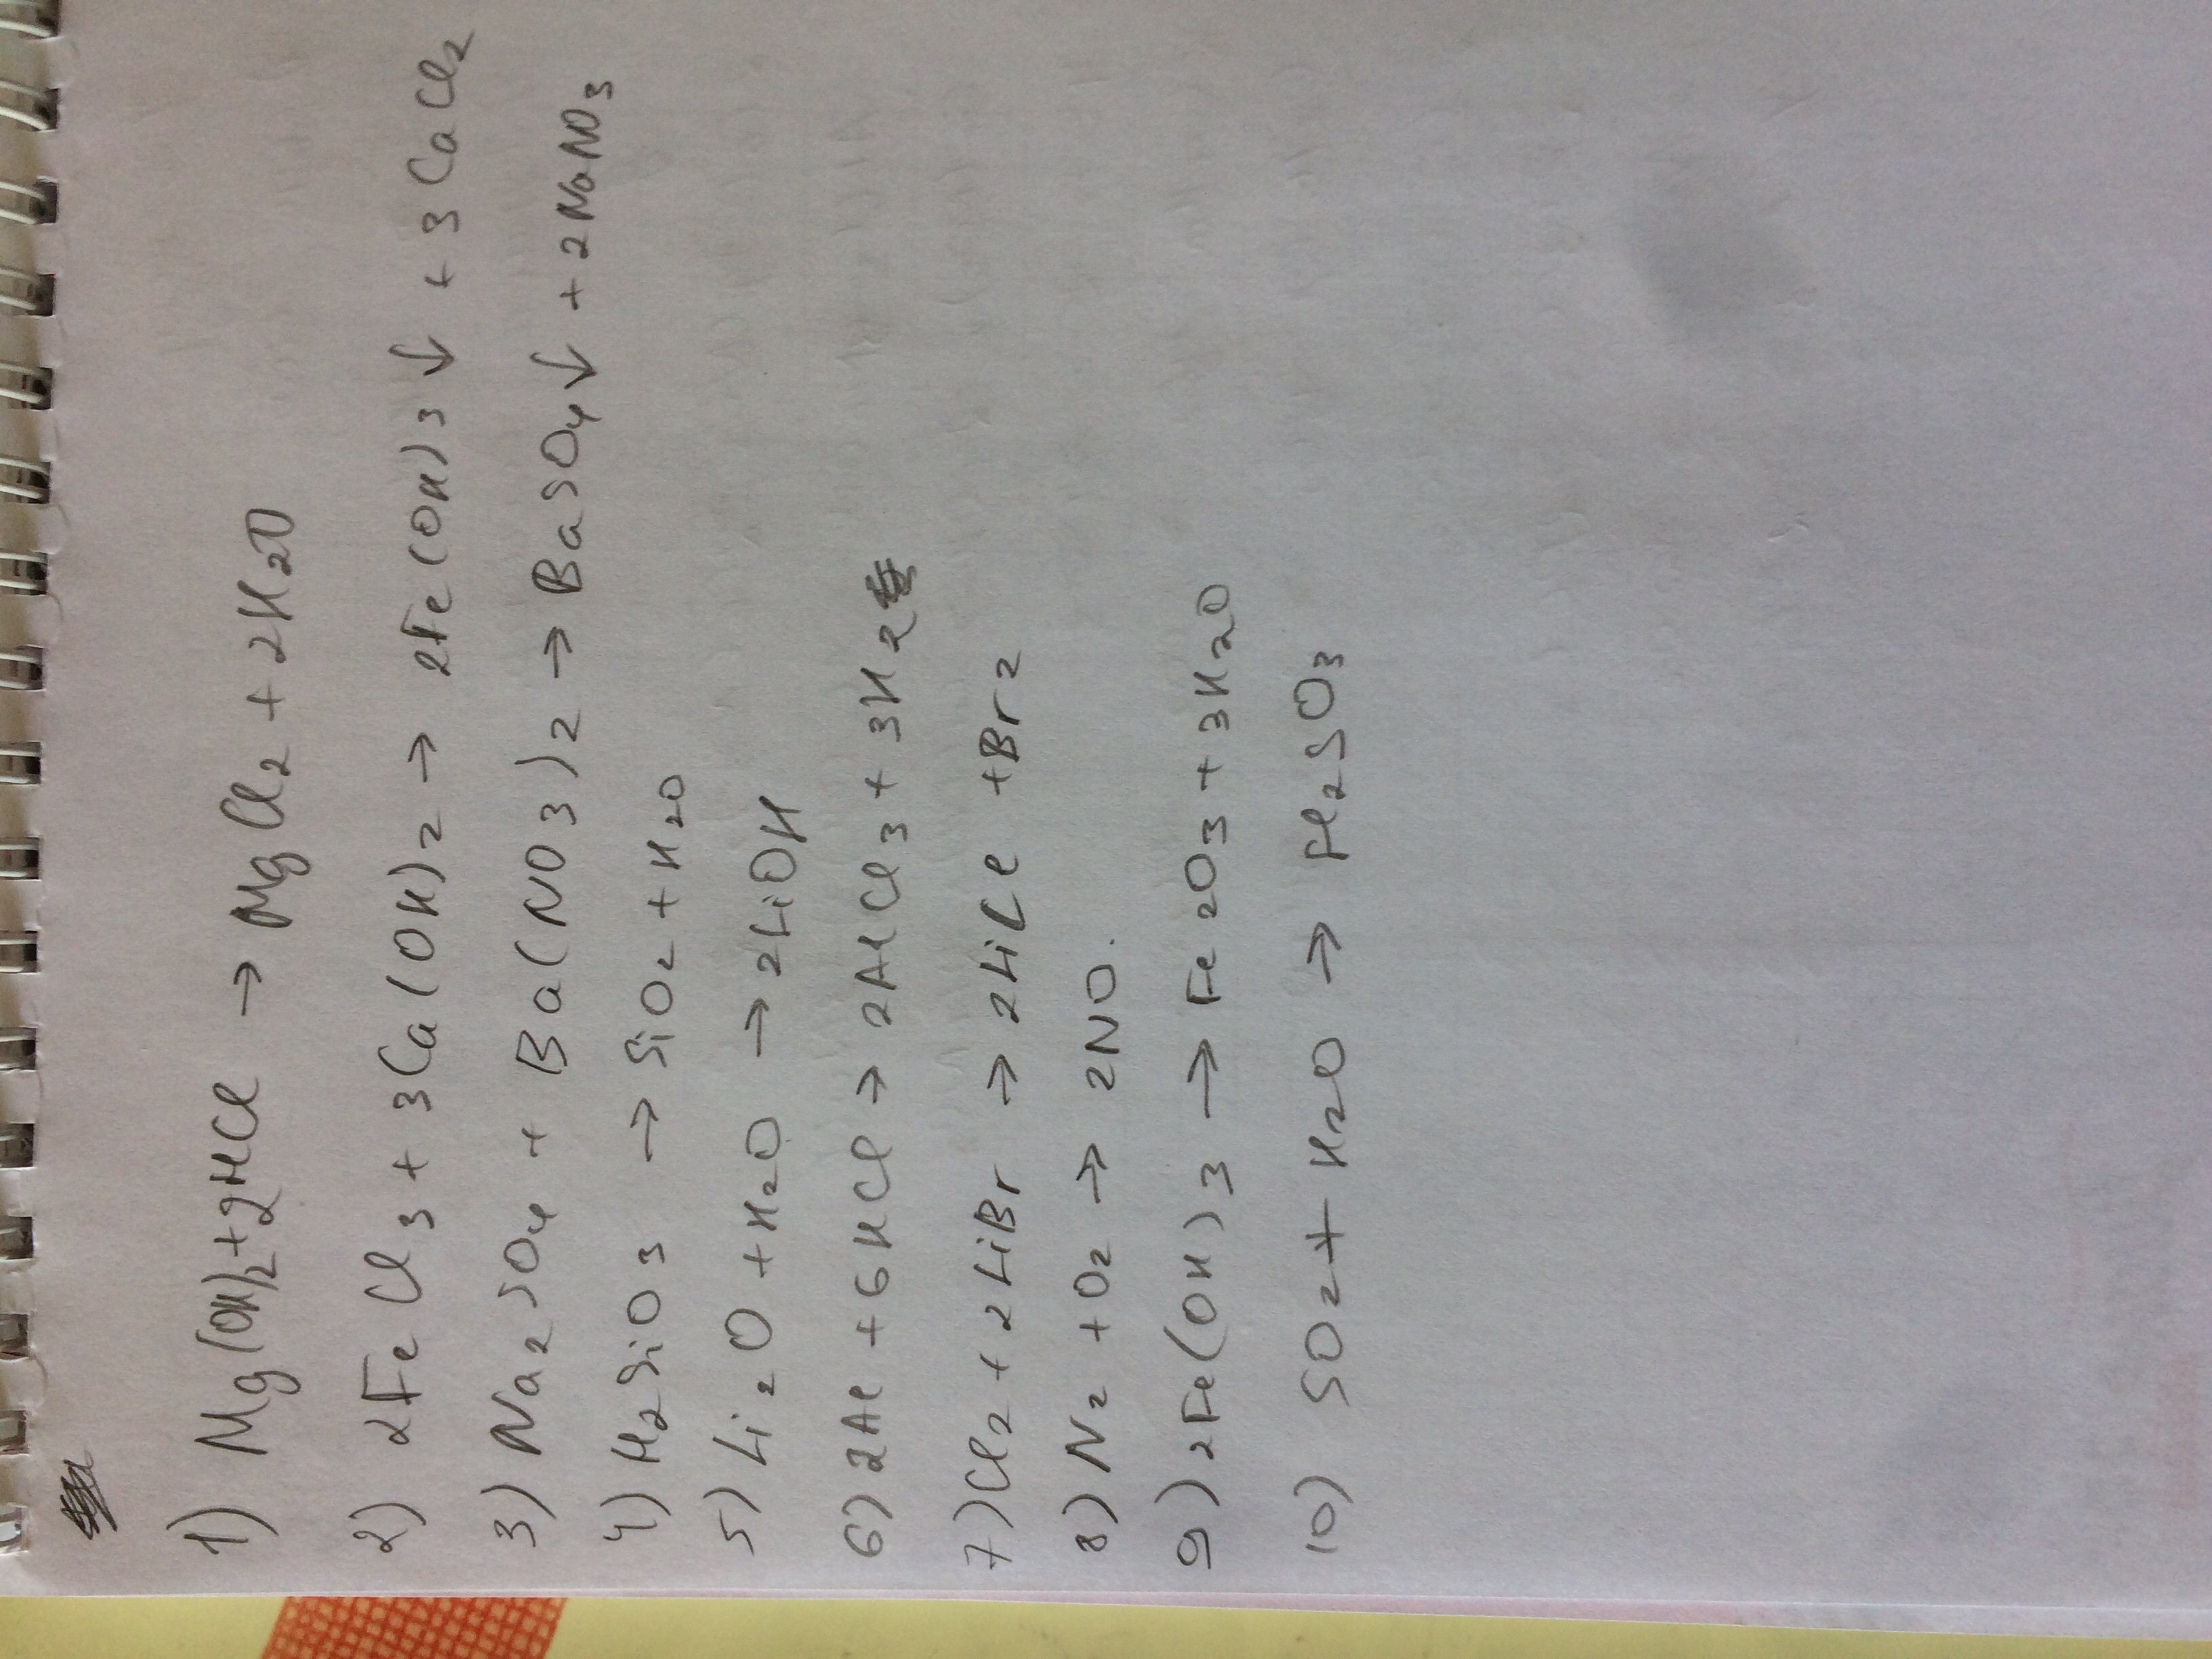 1) Mg(OH)2+2HCl → MgCl2 + 2H2O
2) 2FeCl3 + 3Ca(OH)2 → 2Fe(OH)3↓ + 3CaCl2
3) Na2SO4 + Ba(NO3)2 → BaSO4↓ + 2NaNO3
4) H2SiO3 → SiO2 + H2O
5) Li2O + H2O → 2LiOH
6) 2Al + 6HCl → 2AlCl3 + 3H2
7) Cl2 + 2LiBr → 2LiCl + Br2
8) N2 + O2 → 2NO.
9) 2Fe(OH)3 → Fe2O3 + 3H2O
10) SO2 + H2O → H2SO3